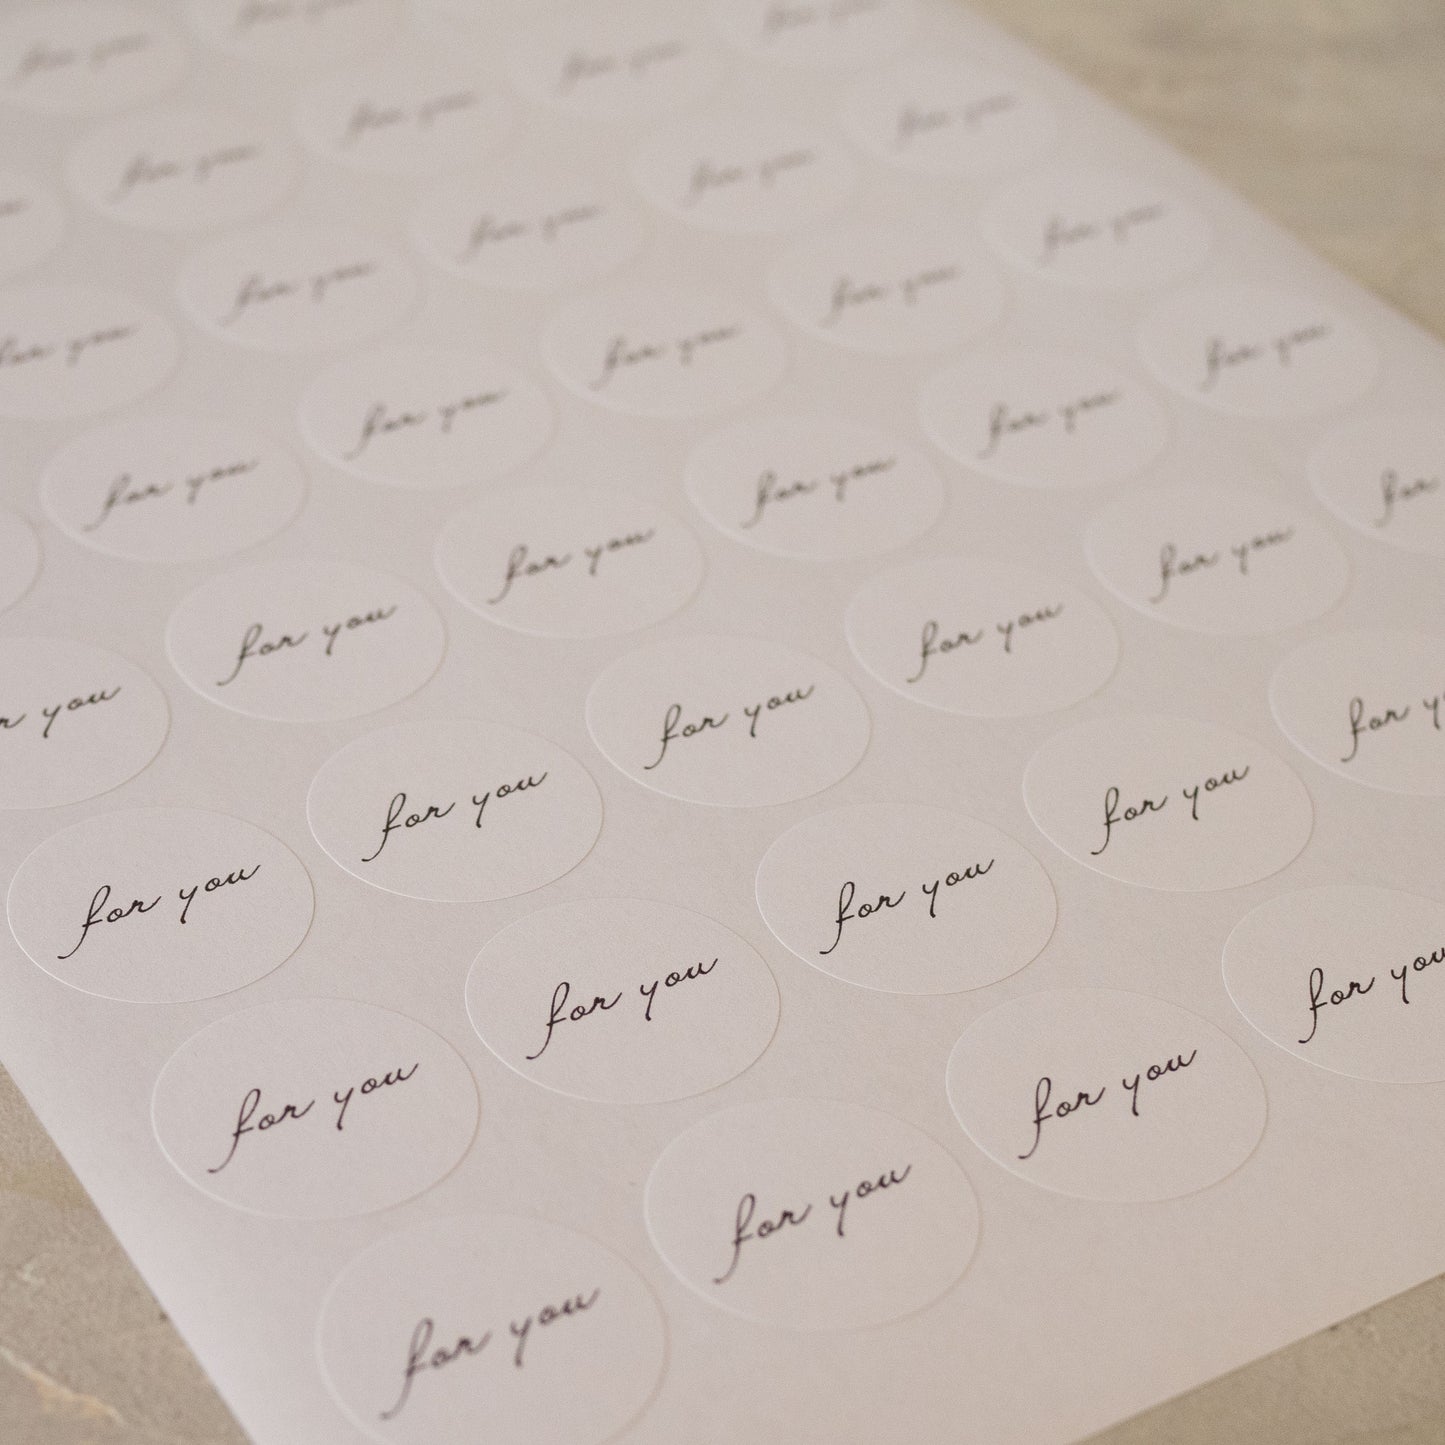 for you
for you
for you
for you
for you
for you
for you
for you
for you
for you
for
for you
for you
for you
for you
you
for you
for
for you
for you
for you
for you
for you
for you
for you
for you
for you
for you